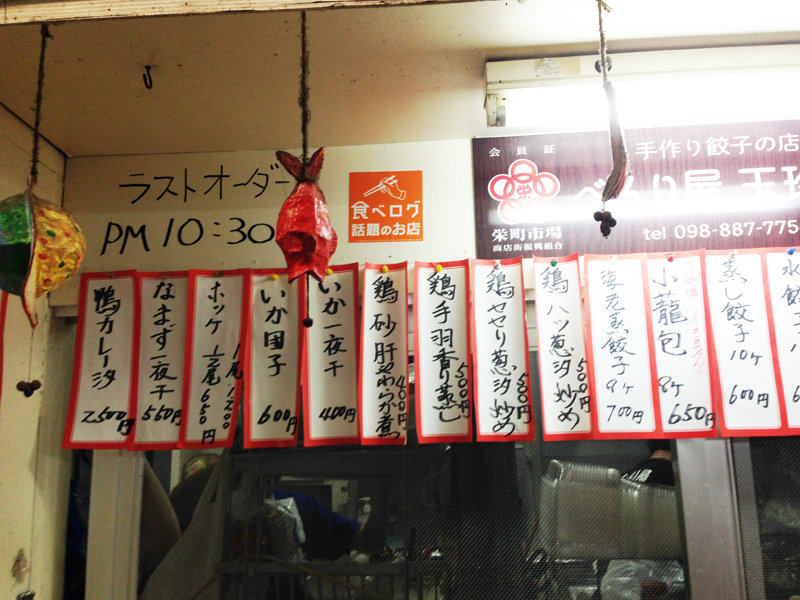 ラストオーダー
PM 10:30
食べログ
話題のお店
会員証
手作り餃子の店
べんり屋 玉玲
栄
栄町市場
商店街振興組合
tel 098-887-775
鴨カレー汐
2,500円
なまず一夜干
550円
ホッケ 1/2尾 650円
1尾 1,200
いか団子
600円
いか一夜干
400円
鶏砂肝やわらか煮
400円
鶏手羽香り蒸し
500円
鶏セセリ葱汐炒め
500円
鶏ハツ葱汐炒め
500円
海老蒸し餃子
9ヶ
700円
小龍包
8ヶ
650円
蒸し餃子
10ヶ
600円